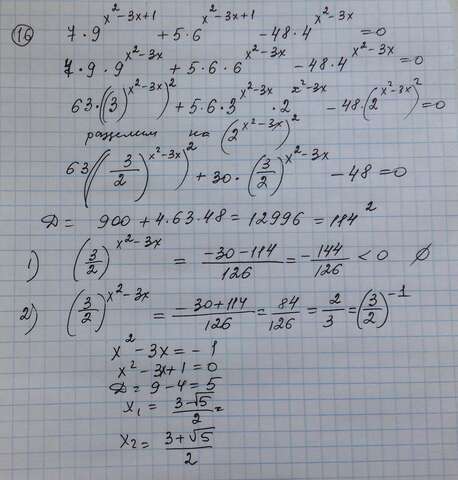 (16) 7·9^(x²-3x+1) + 5·6^(x²-3x+1) - 48·4^(x²-3x) = 0
7·9·9^(x²-3x) + 5·6·6^(x²-3x) - 48·4^(x²-3x) = 0
63·((3)^(x²-3x))² + 5·6·3^(x²-3x)·2^(x²-3x) - 48·(2^(x²-3x))² = 0
разделим на (2^(x²-3x))²
63((3/2)^(x²-3x))² + 30·(3/2)^(x²-3x) - 48 = 0
D = 900 + 4·63·48 = 12996 = 114²
1) (3/2)^(x²-3x) = (-30-114)/126 = -144/126 < 0 ∅
2) (3/2)^(x²-3x) = (-30+114)/126 = 84/126 = 2/3 = (3/2)^(-1)
x² - 3x = -1
x² - 3x + 1 = 0
D = 9 - 4 = 5
x₁ = (3-√5)/2 =
x₂ = (3+√5)/2